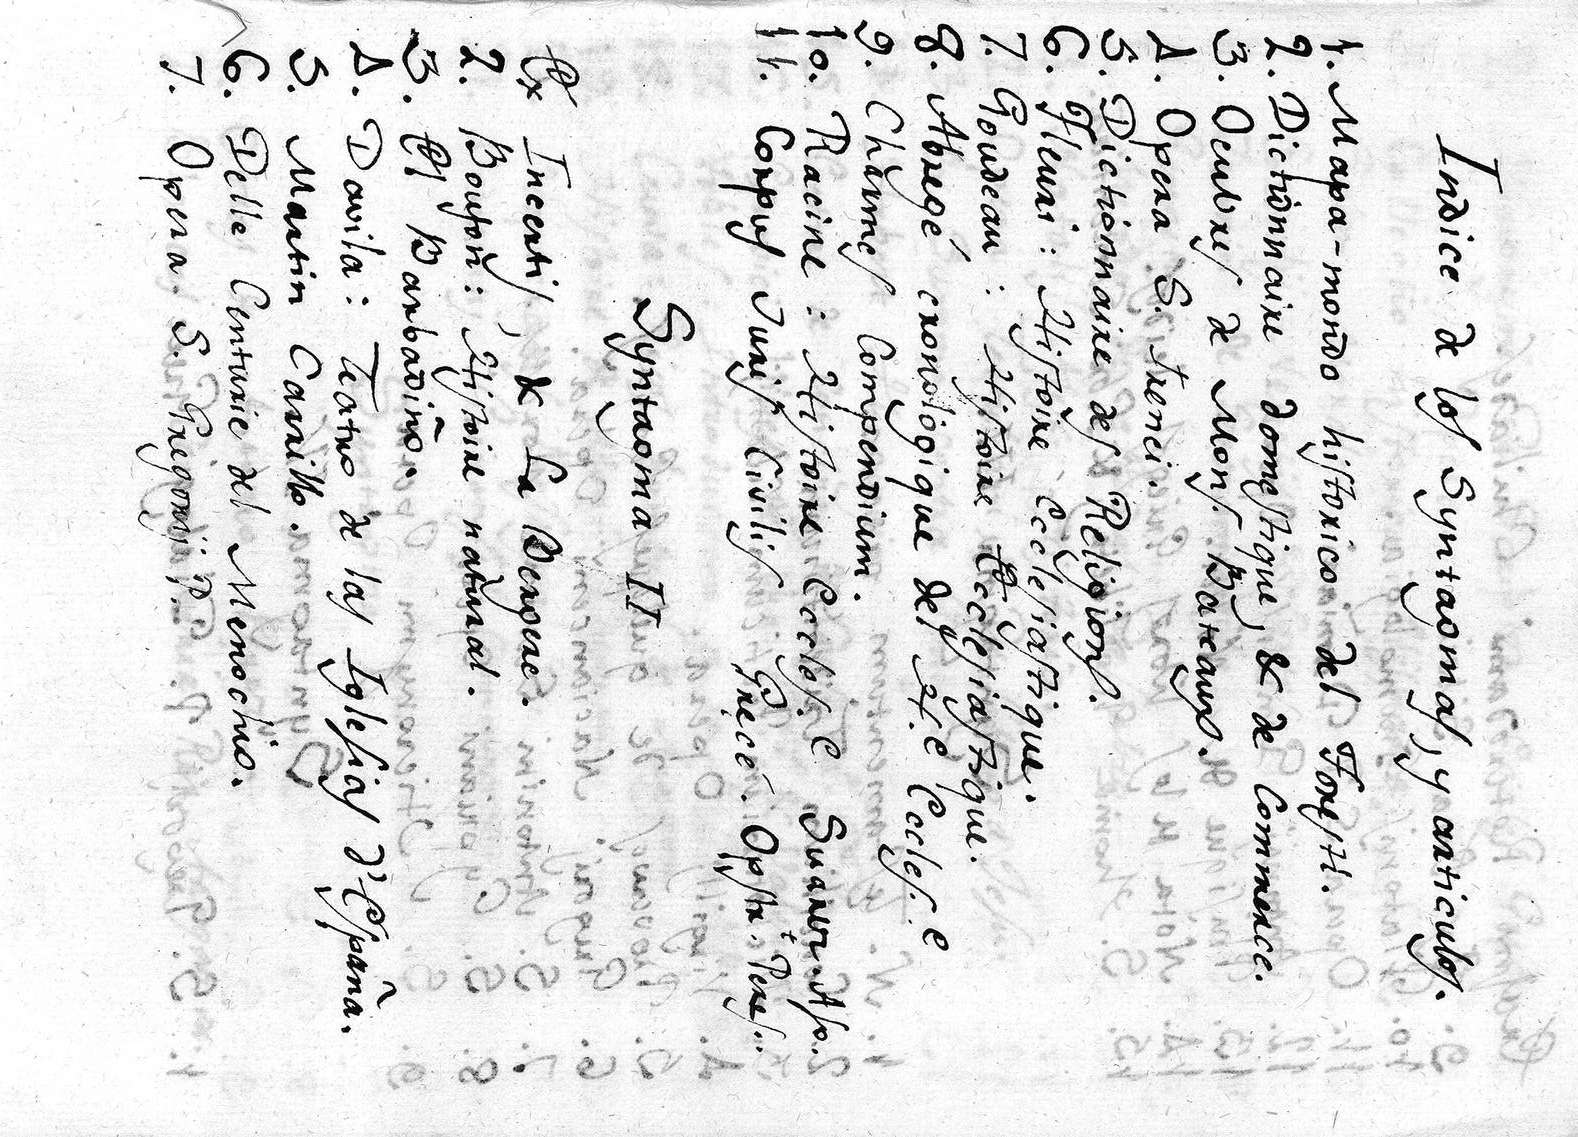 Indice de los Syntagmas, y articulos.
1. Mapa-mondo historico del Foresti.
2. Dictionnaire domestique, & de Commerce.
3. Oeubres de Mons. Baxaux.
4. Opera S. Irenei.
5. Dictionnaire des Religions.
6. Fleuri: Histoire Ecclesiastique.
7. Goudeau: Histoire Ecclesiastique.
8. Abregé cronologique de l'H.e Eccles.e
9. Charmes Compendium.
10. Racine: Histoire Eccles.e
11. Corpus Juris Civilis
Syntagma II
Incerti, & La Bergere.
2. Boufon: Histoire natural.
3. Barbadiño.
4. Davila: Teatro de las Iglesias d'España.
5. Martin Carrillo.
6. Delle Centurie del Menochio.
7. Opera S. Gregorij P.